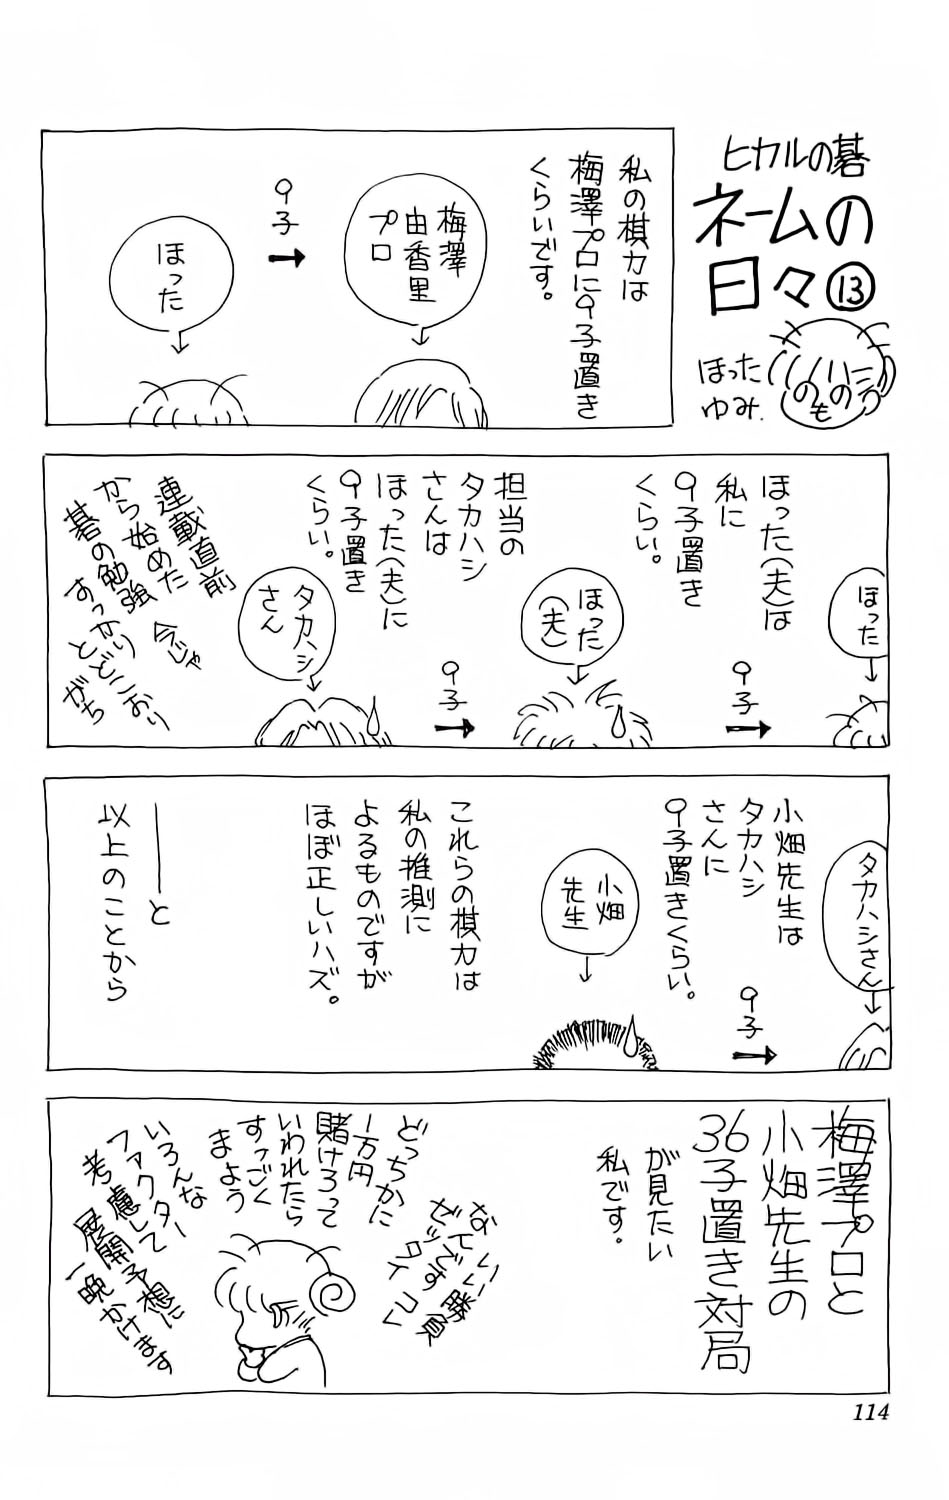 ヒカルの碁
ネームの
日々⑬
ほった
ゆみ.
私の棋力は
梅澤プロに9子置き
くらいです。
梅澤
由香里
プロ
9子
ほった
ほった
ほった(夫)は
私に
9子置き
くらい。
9子
ほった
(夫)
担当の
タカハシ
さんは
ほった(夫)に
9子置き
くらい。
9子
タカハシ
さん
連載直前
から始めた
碁の勉強
今じゃ
すっかり
とどこおり
がち
タカハシさん
小畑先生は
タカハシ
さんに
9子置きくらい。
9子
小畑
先生
これらの棋力は
私の推測に
よるものですが
ほぼ正しいハズ。
――と
以上のことから
梅澤プロと
小畑先生の
36子置き対局
が見たい
私です。
いい勝負
なんです
ゼッタイコレ
どっちかに
1万円
賭けろって
いわれたら
すっごく
まよう
いろんな
ファクター
考慮して
展開予想に
一晩かけます
114